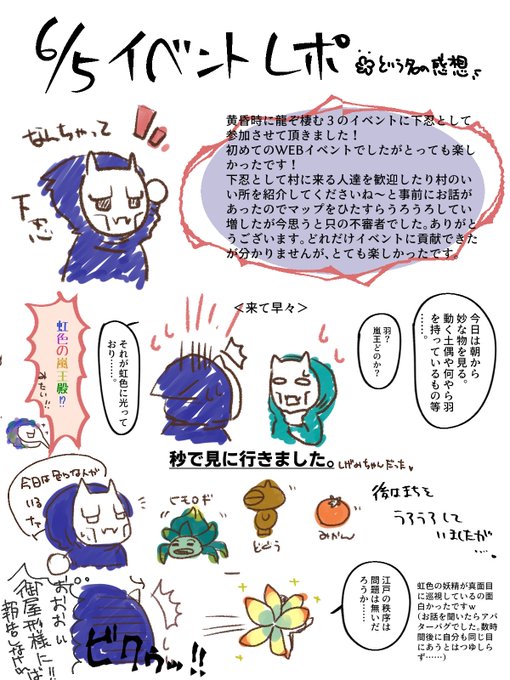 6/5 イベントレポ
という名の感想
なんちゃって
下忍
黄昏時に龍ぞ棲む３のイベントに下忍として
参加させて頂きました！
初めてのWEBイベントでしたがとっても楽し
かったです！
下忍として村に来る人達を歓迎したり村のい
い所を紹介してくださいね〜と事前にお話が
あったのでマップをひたすらうろうろしてい
増したが今思うと只の不審者でした。ありがと
うございます。どれだけイベントに貢献できた
が分かりませんが、とても楽しかったです。
＜来て早々＞
今日は朝から
妙な物を見る。
動く土偶や何やら羽
を持っているもの等
羽？
嵐王どのか？
それが虹色に光って
おり……。
虹色の嵐王殿!?
みたい!!
秒で見に行きました。
しげみちゃんだった
今日は色んなんが
いるなァ
ヒモロギ
どぐう
みかん
後はまちを
うろうろして
いましたが
…。
江戸の秩序は
問題は無いだ
ろうか……
おおおい
ビクゥッ!!
虹色の妖精が真面目
に巡視しているの面
白かったですｗ
（お話を聞いたらアバ
ターバグでした。数時
間後に自分も同じ目
にあうとはつゆしら
ず……）